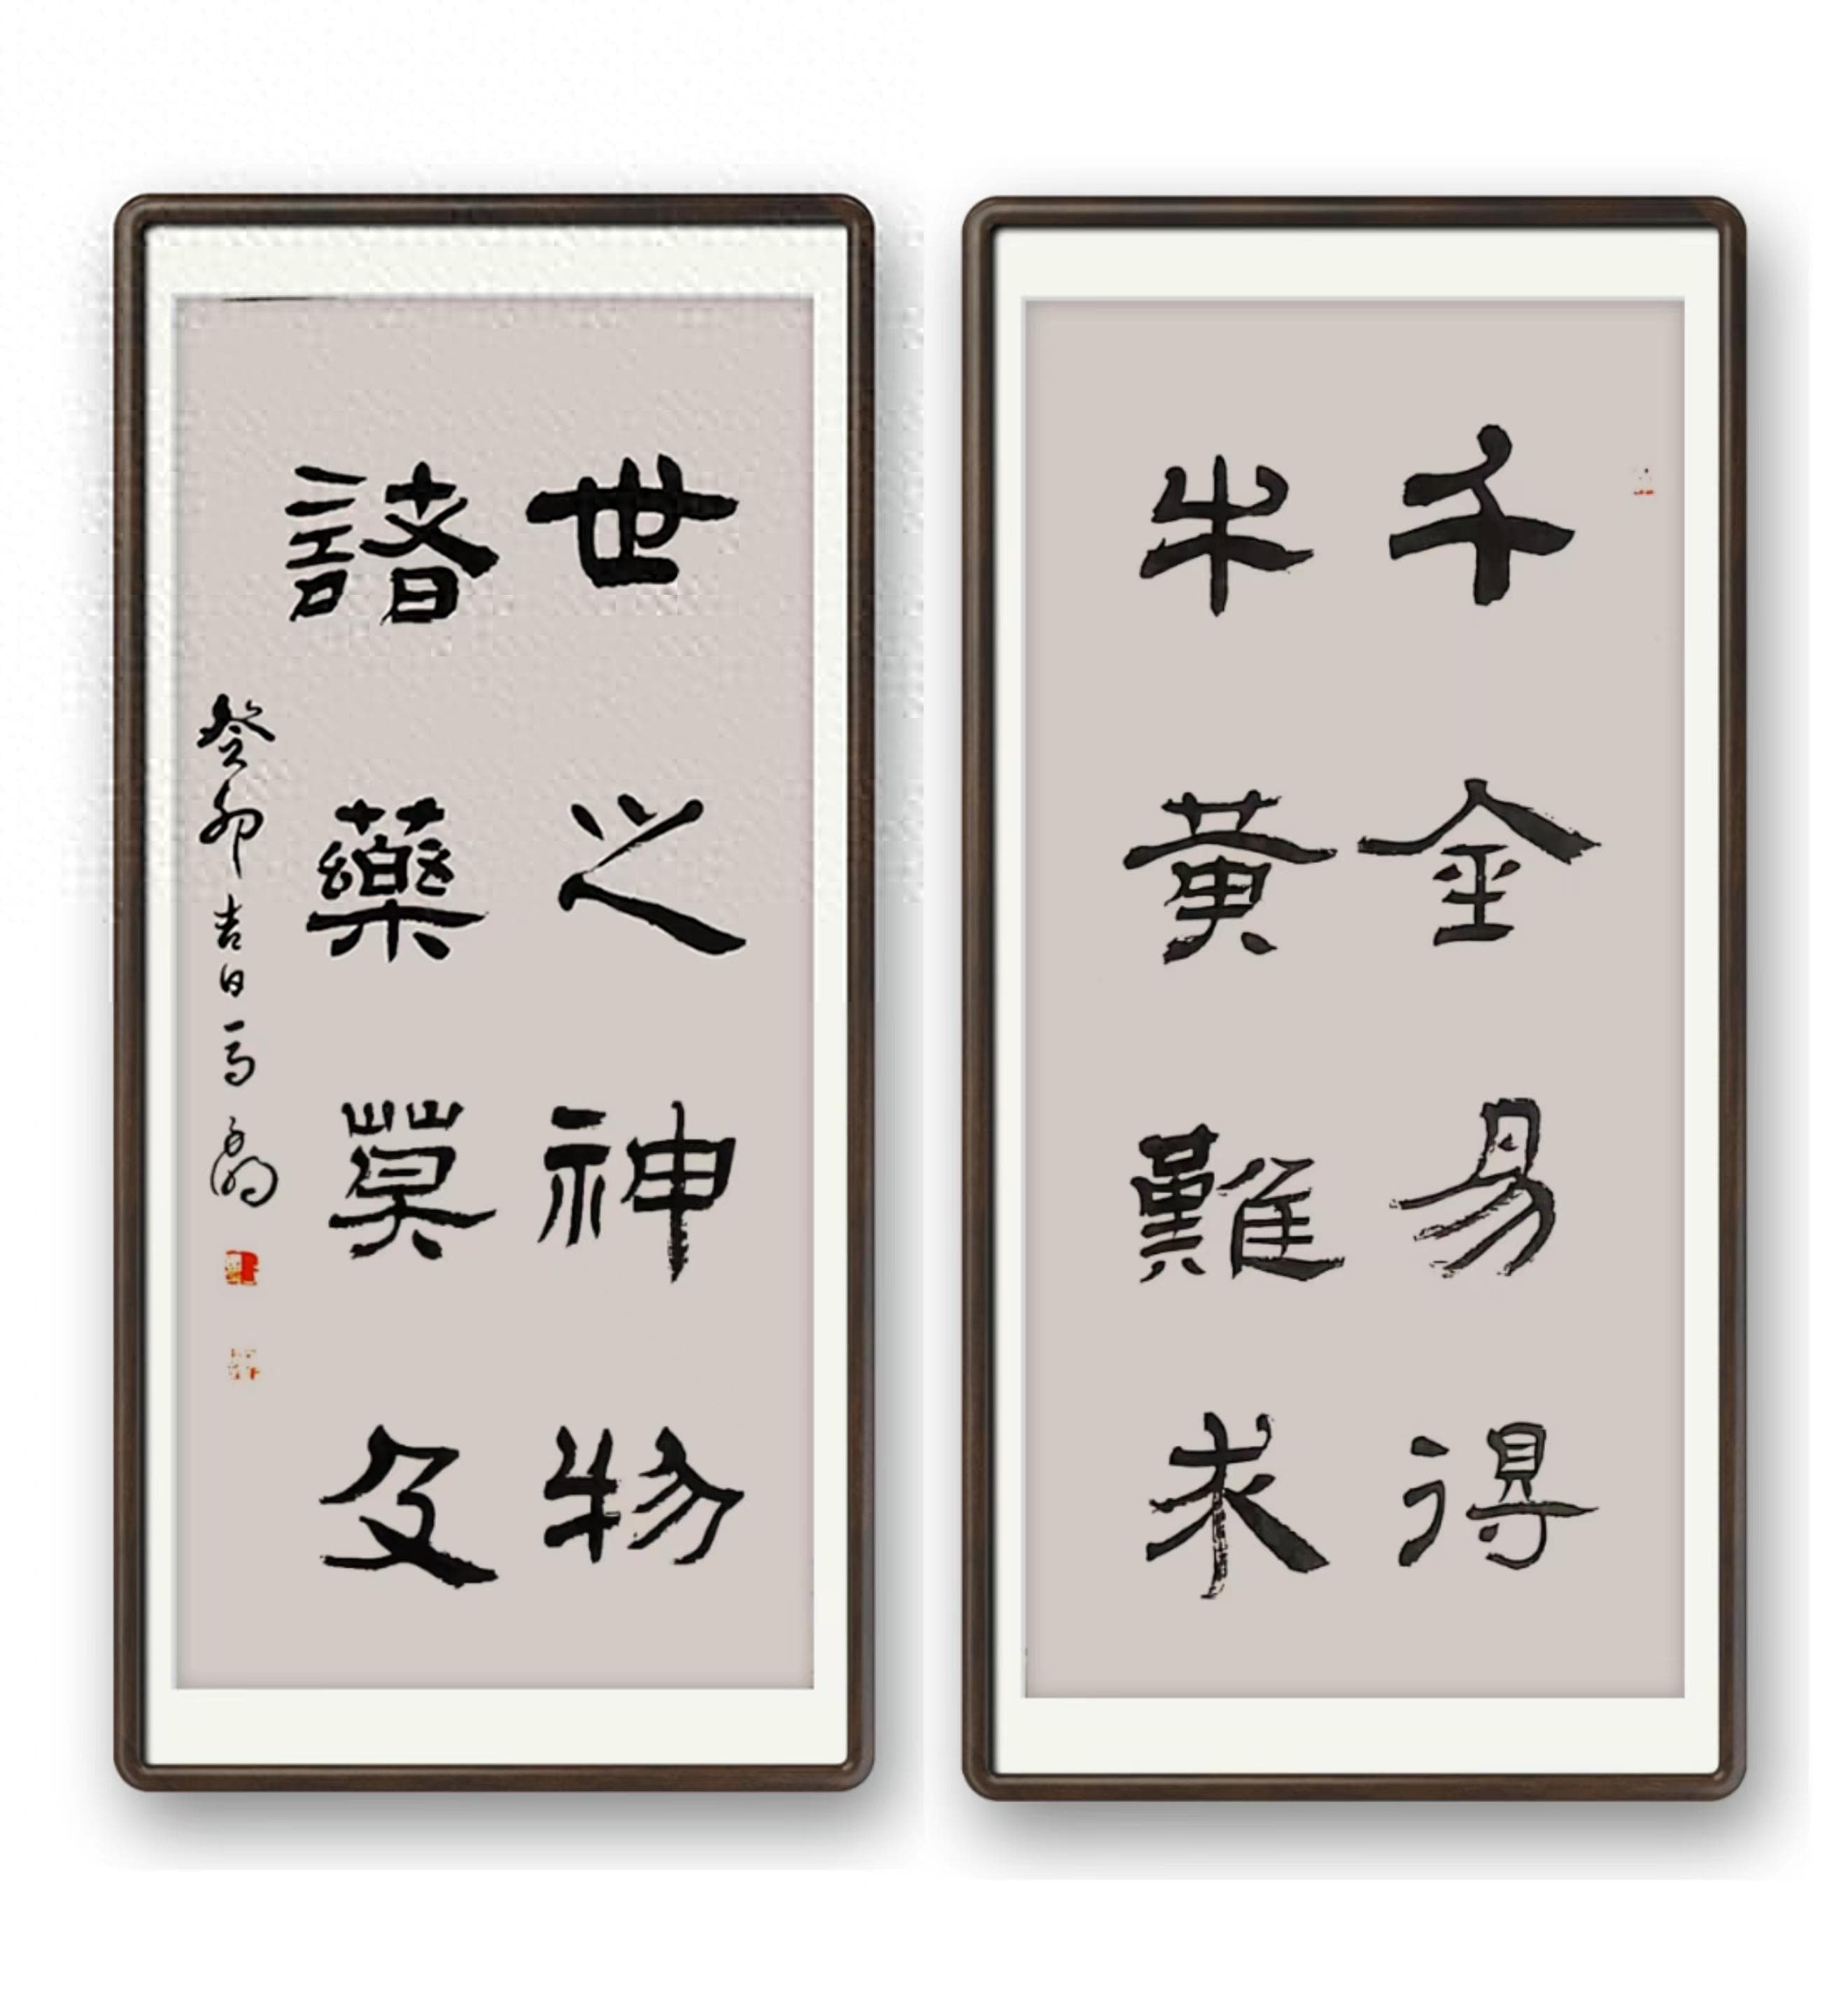 千金易得
牛黄難求
世之神物
諸藥莫及
癸卯吉日